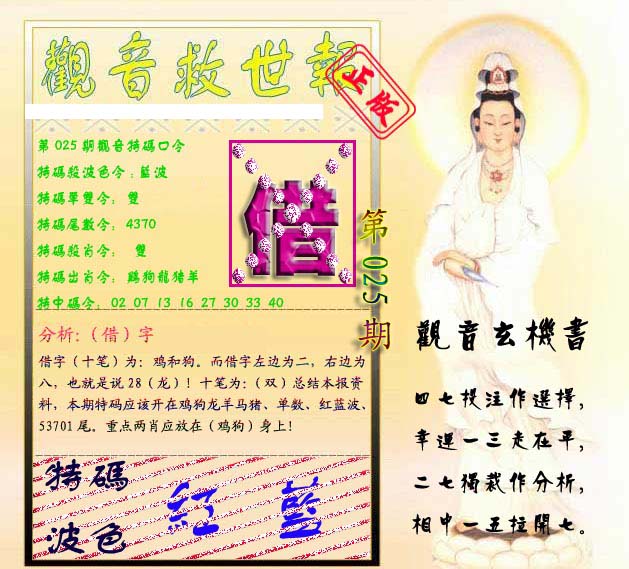 觀音救世報
正版
第025期觀音特碼口令
特碼殺波色令:藍波
特碼單雙令: 雙
特碼尾數令: 4370
特碼殺肖令: 雙
特碼出肖令: 鷄狗龍猪羊
特中碼令: 02 07 13 16 27 30 33 40
借
第025期
分析:（借）字
借字（十笔）为: 鸡和狗。而借字左边为二，右边为
八，也就是说28（龙）！十笔为:（双）总结本报资
料，本期特码应该开在鸡狗龙羊马猪、单数、红蓝波、
53701尾。重点两肖应放在（鸡狗）身上!
特碼
波色
紅 藍
觀音玄機書
四七投注作選擇,
幸運一三走在平,
二七獨裁作分析,
相中一五拉開七。